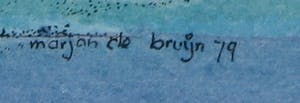 marjan de bruijn 79